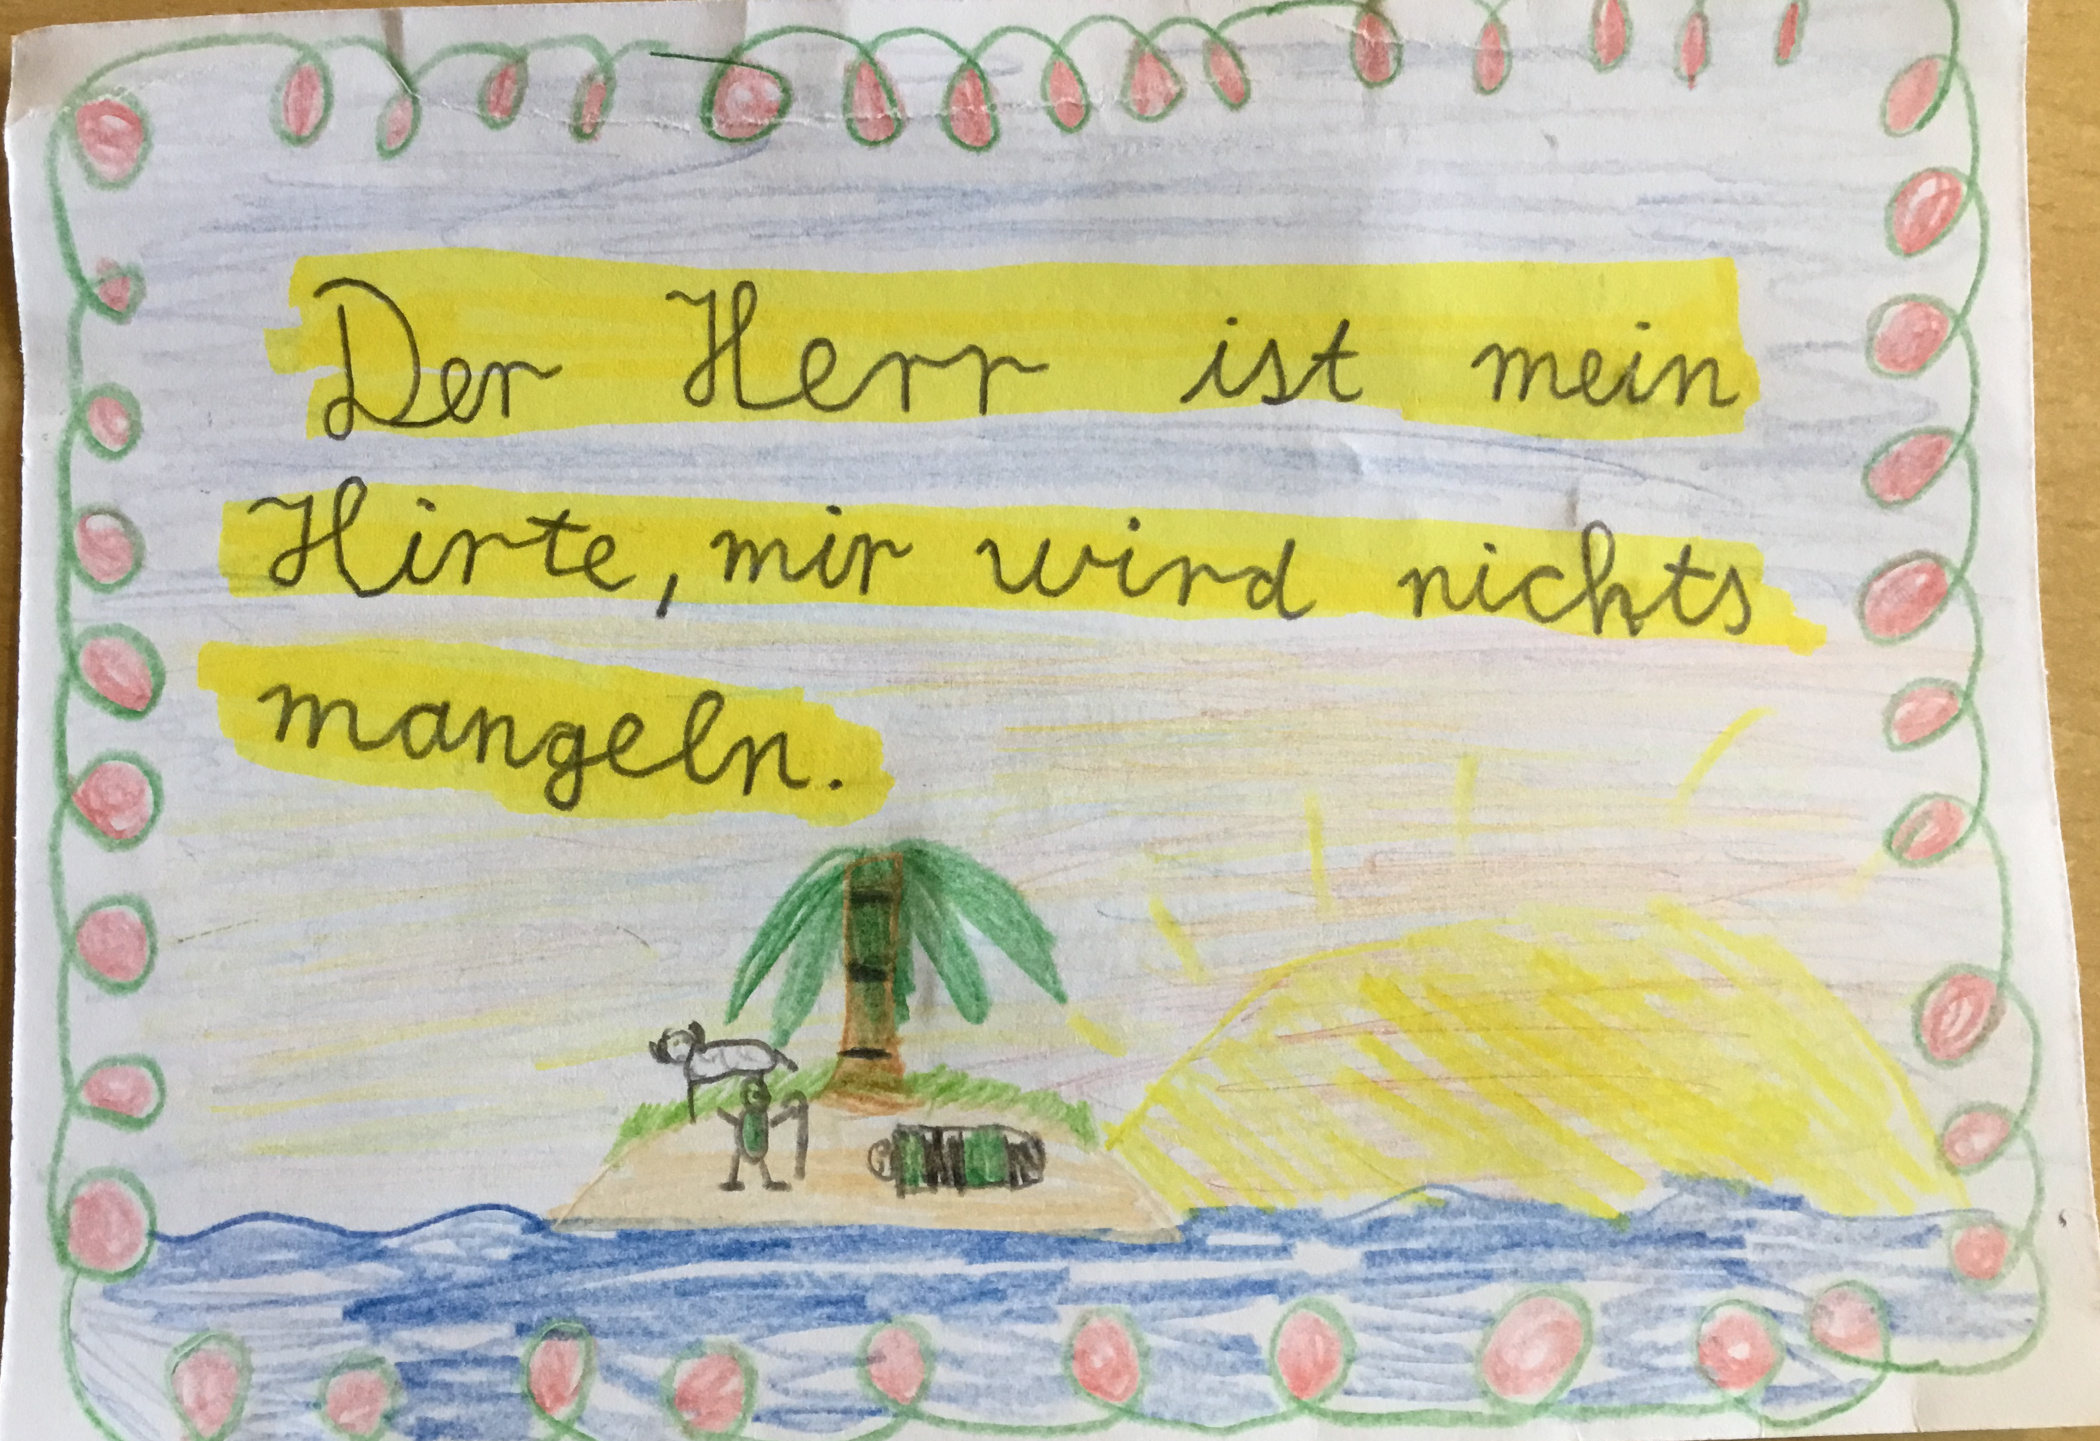 Der Herr ist mein
Hirte, mir wird nichts
mangeln.